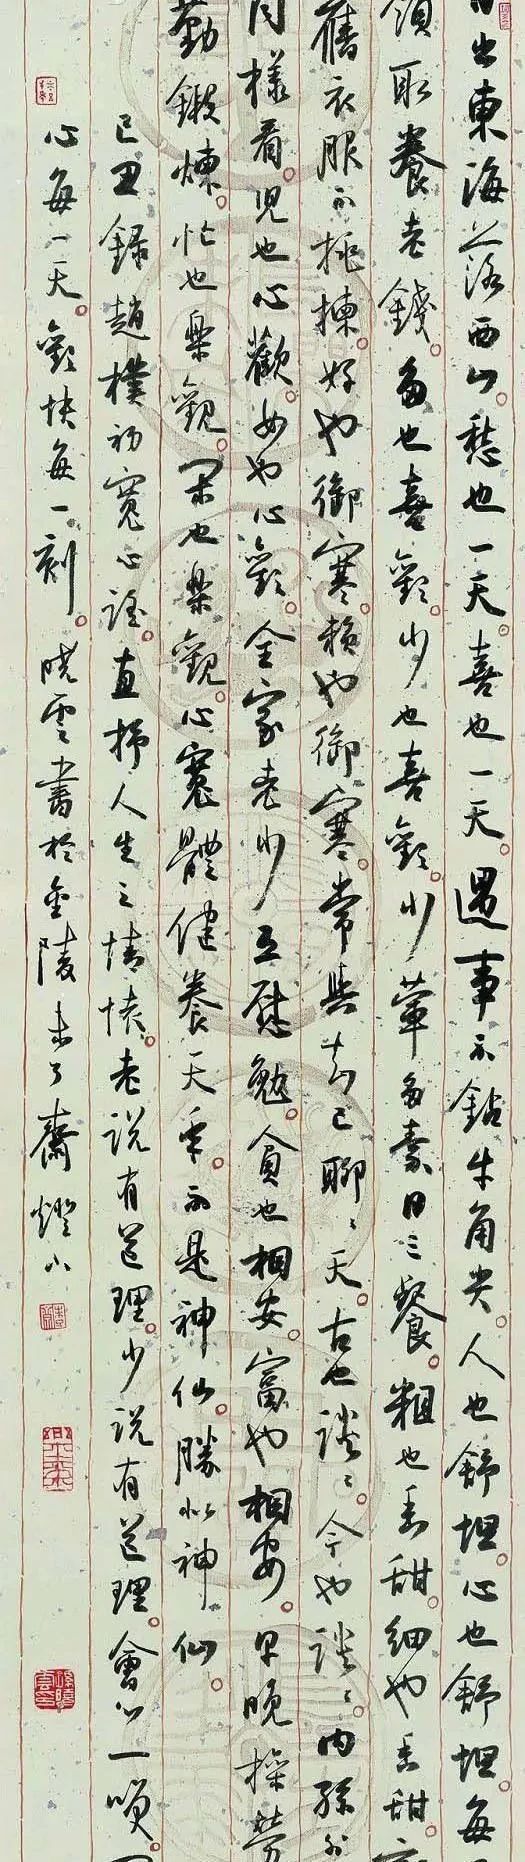 日出東海落西山。愁也一天。喜也一天。遇事不鑽牛角尖。人也舒坦。心也舒坦。每
領取養老錢。多也喜歡。少也喜歡。少葷多素日三餐。粗也香甜。細也香甜。
舊衣服不挑揀。好也御寒。賴也御寒。常與知己聊聊天。古也談談。今也談談。内孫外
同樣看。兒也心歡。女也心歡。全家老少互慰勉。貧也相安。富也相安。早晚操勞
勤鍛煉。忙也樂觀。閑也樂觀。心寬體健養天年。不是神仙。勝似神仙。
己丑錄趙樸初寬心謠。直抒人生之情懷。老說有道理。少說有道理。會心一唄。
心每一天。歡快每一刻。曉雲書於金陵未了齋燈下